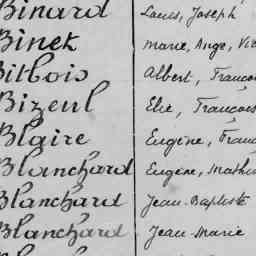 Binard Louis, Joseph
Binet Marie, Ange, Vic
Bitbois Albert, Françoi
Bizeul Elie, François
Blaire Eugène, Franç
Blanchard Eugène, Mathu
Blanchard Jean-Baptiste
Blanchard Jean-Marie